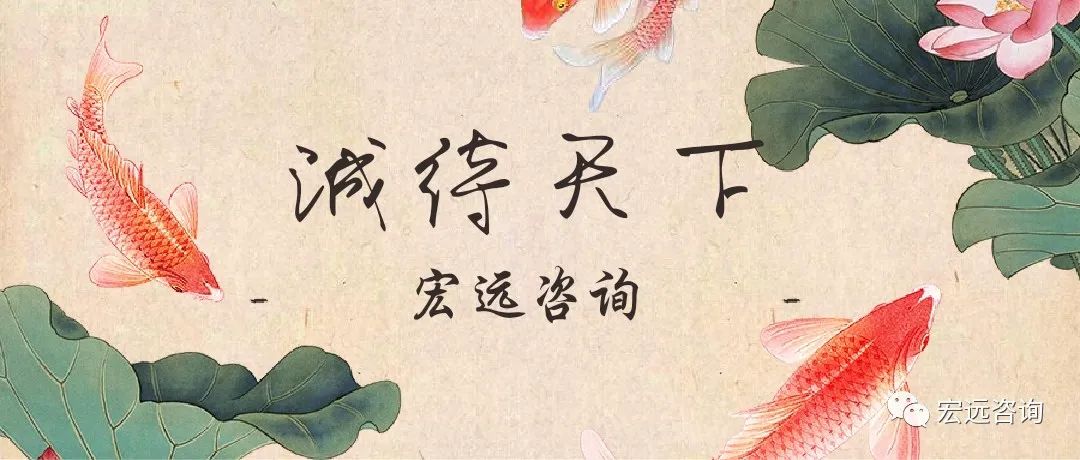 诚待天下
宏远咨询
宏远咨询